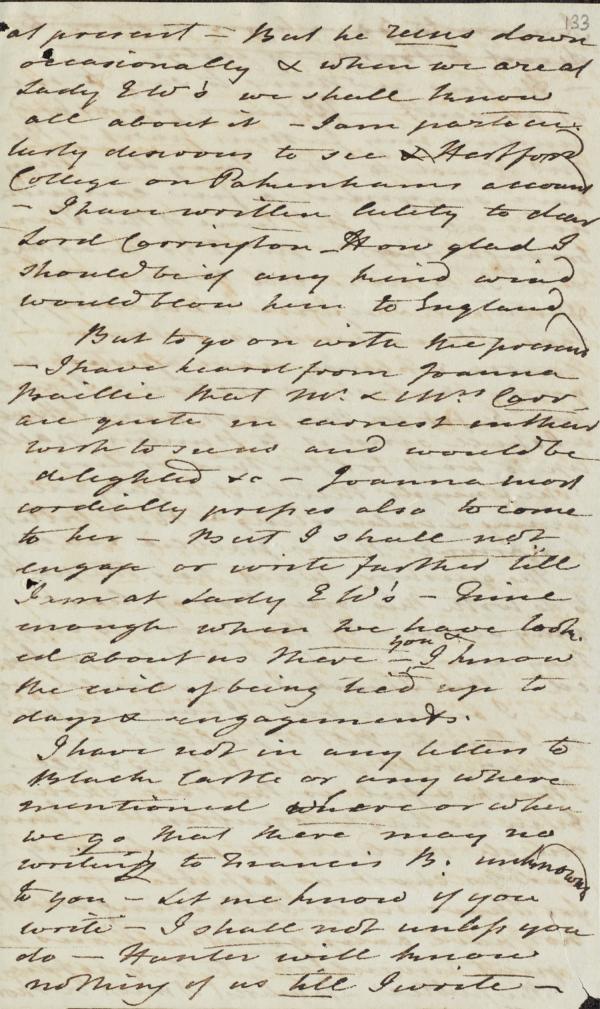 133
at present – But he runs down
occasionally & when we are at
Lady E W's we shall know
all about it – I am particu-
larly desirous to see & Hartford
College on Pakenhams account
– I have written lately to dear
Lord Carrington – How glad I
should be if any kind wind
would blow him to England
But to go on with the present
– I have heard from Joanna
Baillie that Mr. & Mrs Carr
are quite in earnest in their
wish to see us and would be
delighted &c – Joanna most
cordially presses also to come
to her – But I shall not
engage or write farther till
I am at Lady E W's – Time
enough when we have look-
ed about us there – you & I know
the evil of being tied up to
days & engagements.
I have not in any letters to
Black Castle or any where
mentioned where or when
we go that there may no
writing to Francis B. unknown
to you – Let me know if you
write – I shall not unless you
do – Hunter will know
nothing of us till I write –